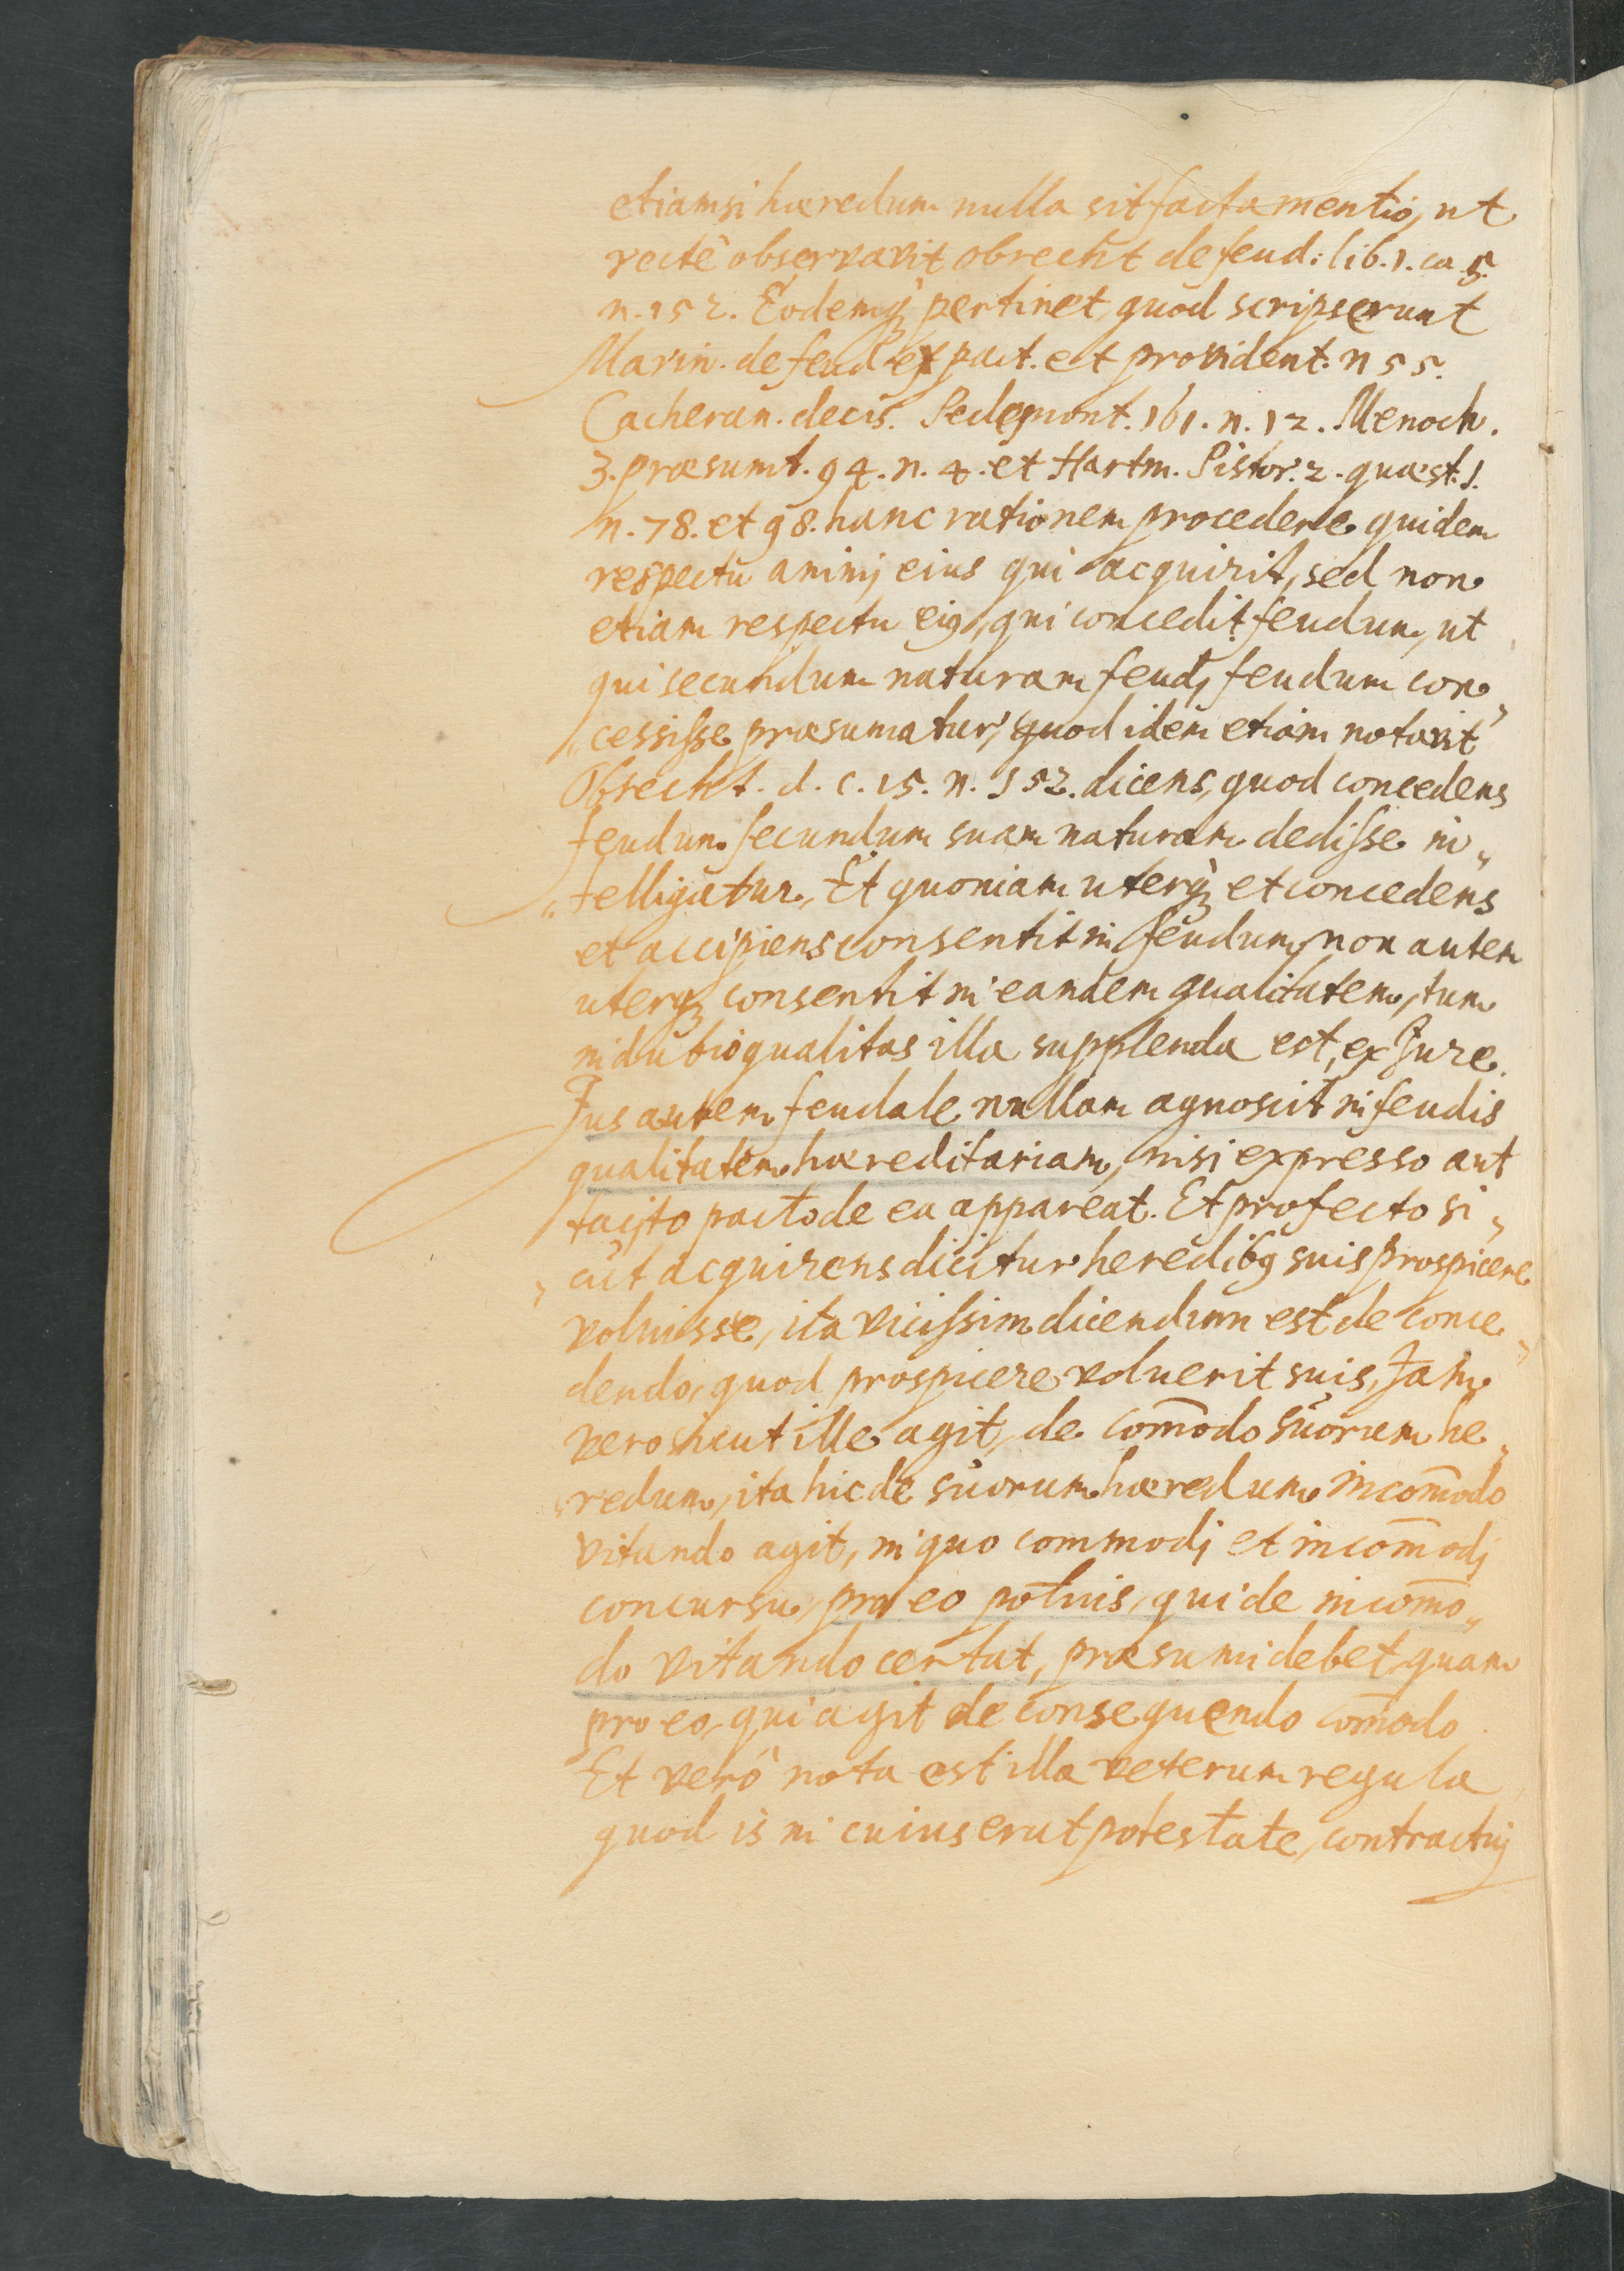 etiamsi hæredum nulla sit facta mentio, ut
rectè observavit obrecht de feud: lib. 1. ca 5.
n. 152. Eodemq̨ pertinet quod scripserunt
Marin. de feud ex pact. et provident. n 55.
Cacheran. decis. Pedemont. 161. n. 12. Menoch.
3. præsumt. 94. n. 4. et Hartm. Pistor. 2. quæst. 1.
n. 78. et 98. hanc rationem procedere quidem
respectu animj eius qui acquirit, sed non
etiam respectu eiꝯ, qui concedit feudum, ut
qui secundum naturam feudj feudum con„
„cessisse præsumatur, quod idem etiam notavit
Obrecht. d. c. 15. n. 152. dicens, quod concedens
feudum secundum suam naturam dedisse in„
„telligatur. Et quoniam uterq̨ et concedens
et accipiens consentit in feudum, non autem
uterq̨ consentit in eandem qualitatem, tum
in dubio qualitas illa supplenda est, ex Jure.
Jus autem feudale nullam agnoscit in feudis
qualitatem hæreditariam, nisi expresso aut
tacito pacto de ea appareat. Et profecto si„
„cut acquirens dicitur heredibꝯ suis prospicere
voluisse, ita vicissim dicendum est de conce„
dendo, quod prospicere voluerit suis, Jam
vero sicut ille agit, de com̄odo suorum he„
„redum, ita hic de suorum hæredum incom̄odo
vitando agit, in quo commodj et incom̄odj
concursu, pro eo potius, qui de incom̄o„
do vitando certat, præsumi debet, quam
pro eo, qui agit de consequendo com̄odo.
Et verò nota est illa veterum regula
quod is in cuius erat potestate, contractuj